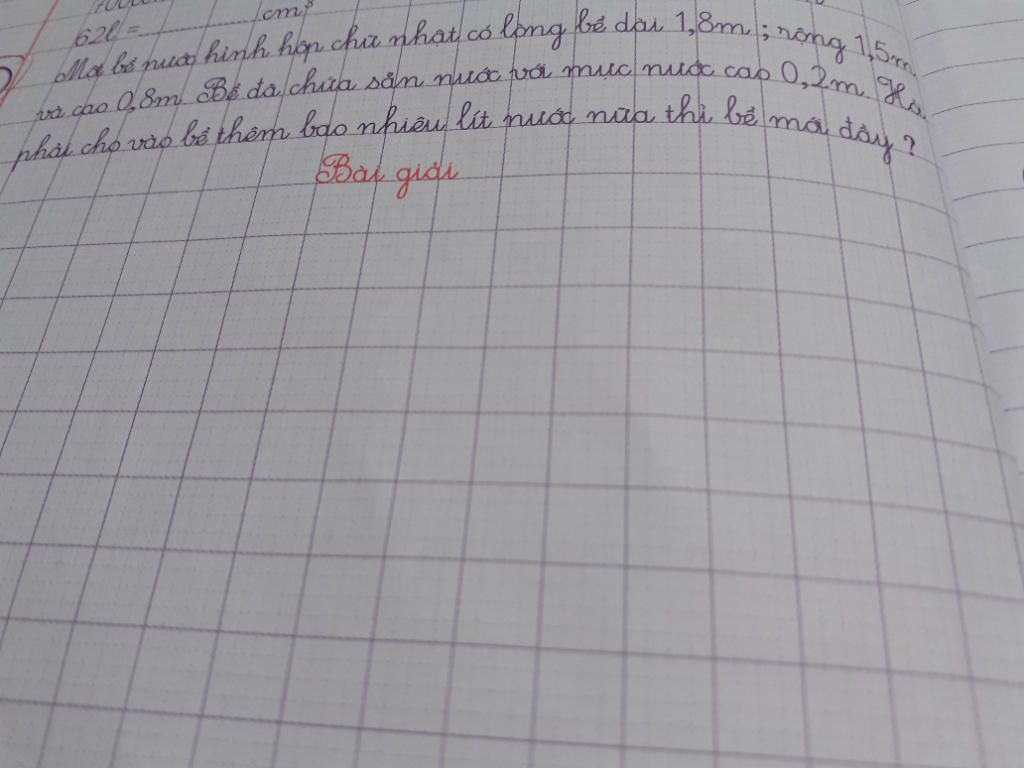 62l = ............ cm³
Một bể nước hình hộp chữ nhật có lòng bể dài 1,8m; rộng 1,5m
và cao 0,8m. Bể đã chứa sẵn nước với mức nước cao 0,2m. Hỏi
phải cho vào bể thêm bao nhiêu lít nước nữa thì bể mới đầy?
Bài giải